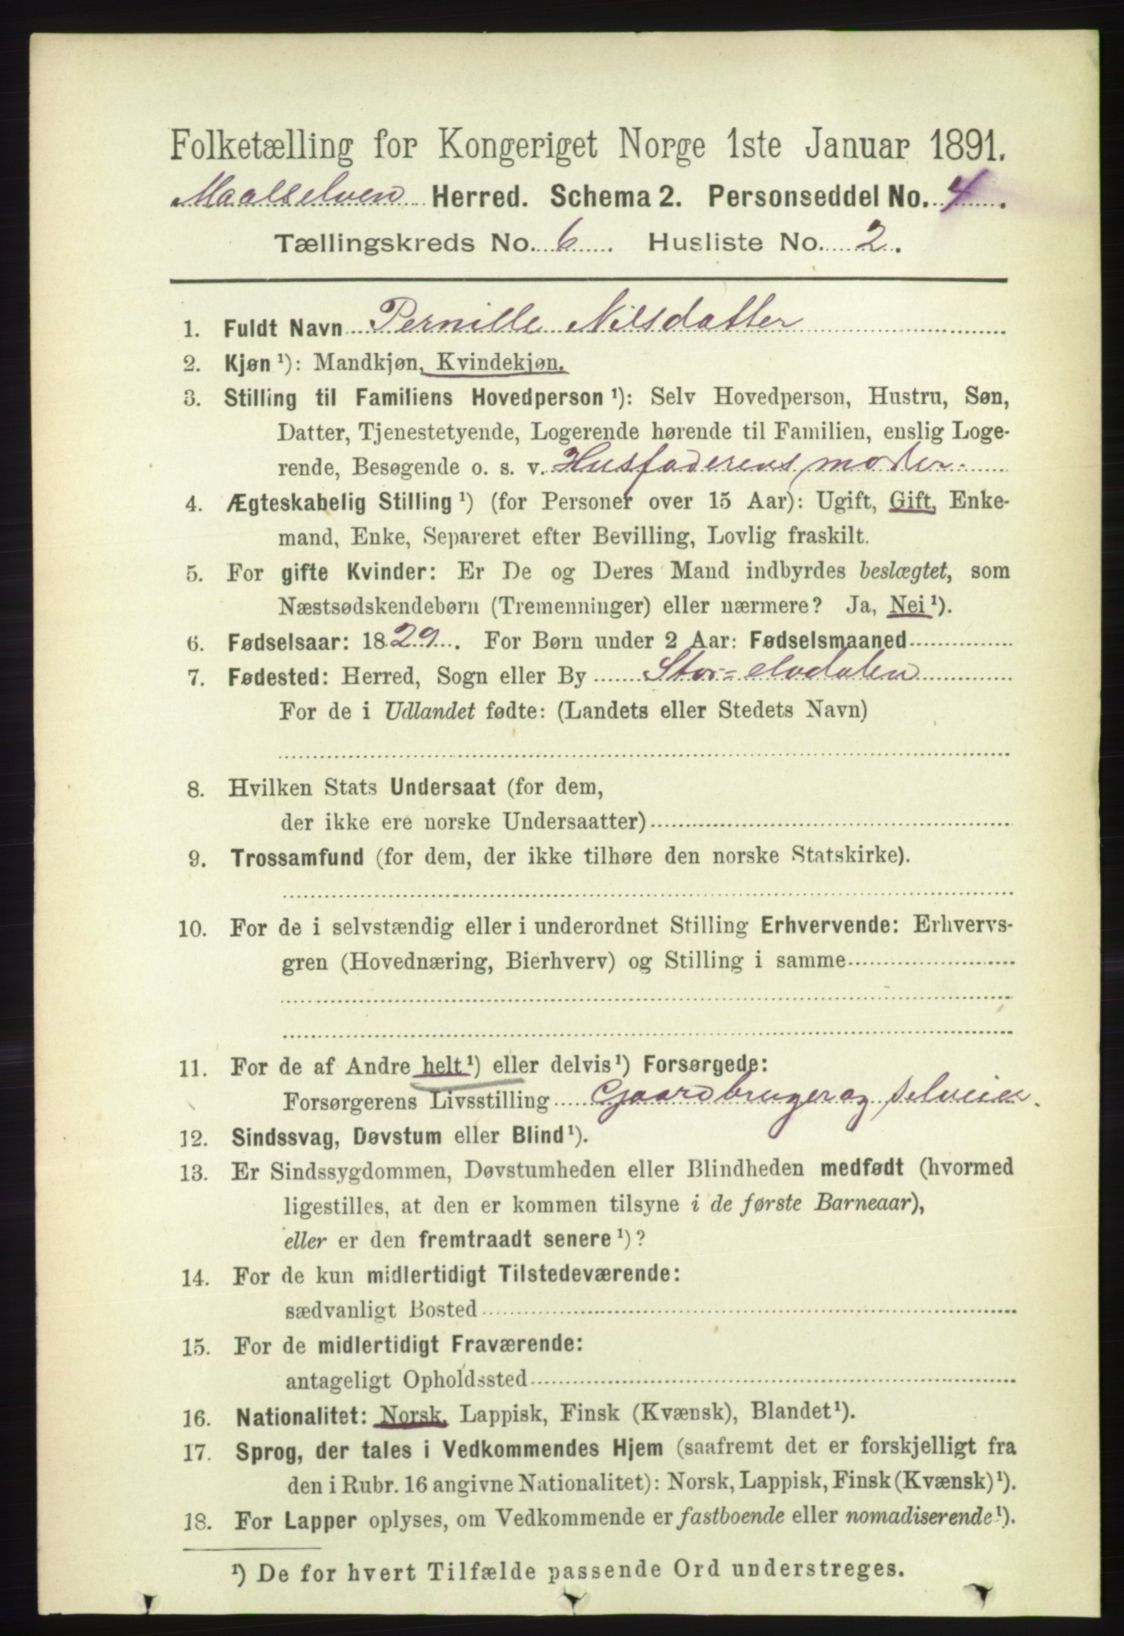 Folketælling for Kongeriget Norge 1ste Januar 1891.
Maalselven Herred. Schema 2. Personseddel No. 4.
Tællingskreds No. 6. Husliste No. 2.
1. Fuldt Navn Pernille Nilsdatter
2. Kjøn ¹): Mandkjøn, Kvindekjøn.
3. Stilling til Familiens Hovedperson ¹): Selv Hovedperson, Hustru, Søn,
Datter, Tjenestetyende, Logerende hørende til Familien, enslig Loge-
rende, Besøgende o. s. v. Husfaderens moder.
4. Ægteskabelig Stilling ¹) (for Personer over 15 Aar): Ugift, Gift, Enke-
mand, Enke, Separeret efter Bevilling, Lovlig fraskilt.
5. For gifte Kvinder: Er De og Deres Mand indbyrdes beslægtet, som
Næstsødskendebørn (Tremenninger) eller nærmere? Ja, Nei ¹).
6. Fødselsaar: 1829. For Børn under 2 Aar: Fødselsmaaned
7. Fødested: Herred, Sogn eller By Stor=elvdalen
For de i Udlandet fødte: (Landets eller Stedets Navn)
8. Hvilken Stats Undersaat (for dem,
der ikke ere norske Undersaatter)
9. Trossamfund (for dem, der ikke tilhøre den norske Statskirke).
10. For de i selvstændig eller i underordnet Stilling Erhvervende: Erhvervs-
gren (Hovednæring, Bierhverv) og Stilling i samme
11. For de af Andre helt ¹) eller delvis ¹) Forsørgede:
Forsørgerens Livsstilling Gaardbruger og selveier.
12. Sindssvag, Døvstum eller Blind ¹).
13. Er Sindssygdommen, Døvstumheden eller Blindheden medfødt (hvormed
ligestilles, at den er kommen tilsyne i de første Barneaar),
eller er den fremtraadt senere ¹)?
14. For de kun midlertidigt Tilstedeværende:
sædvanligt Bosted
15. For de midlertidigt Fraværende:
antageligt Opholdssted
16. Nationalitet: Norsk, Lappisk, Finsk (Kvænsk), Blandet ¹).
17. Sprog, der tales i Vedkommendes Hjem (saafremt det er forskjelligt fra
den i Rubr. 16 angivne Nationalitet): Norsk, Lappisk, Finsk (Kvænsk) ¹).
18. For Lapper oplyses, om Vedkommende er fastboende eller nomadiserende ¹).
¹) De for hvert Tilfælde passende Ord understreges.